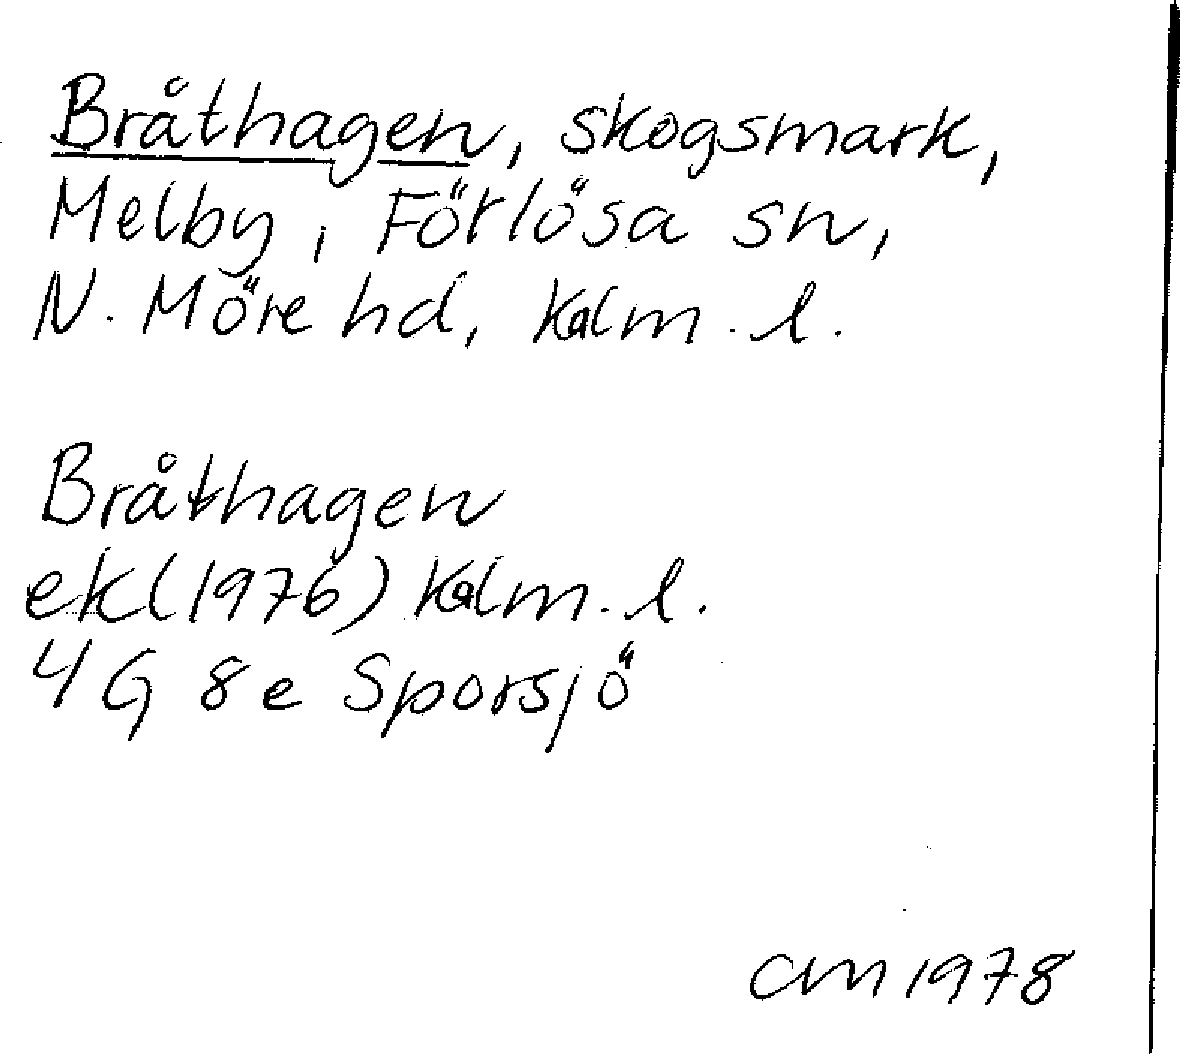 Bråthagen, skogsmark,
Melby, Förlösa sn,
N. Möre hd, Kalm. l.
Bråthagen
ek(1976) Kalm. l.
4G 8e Sporsjö
am 1978